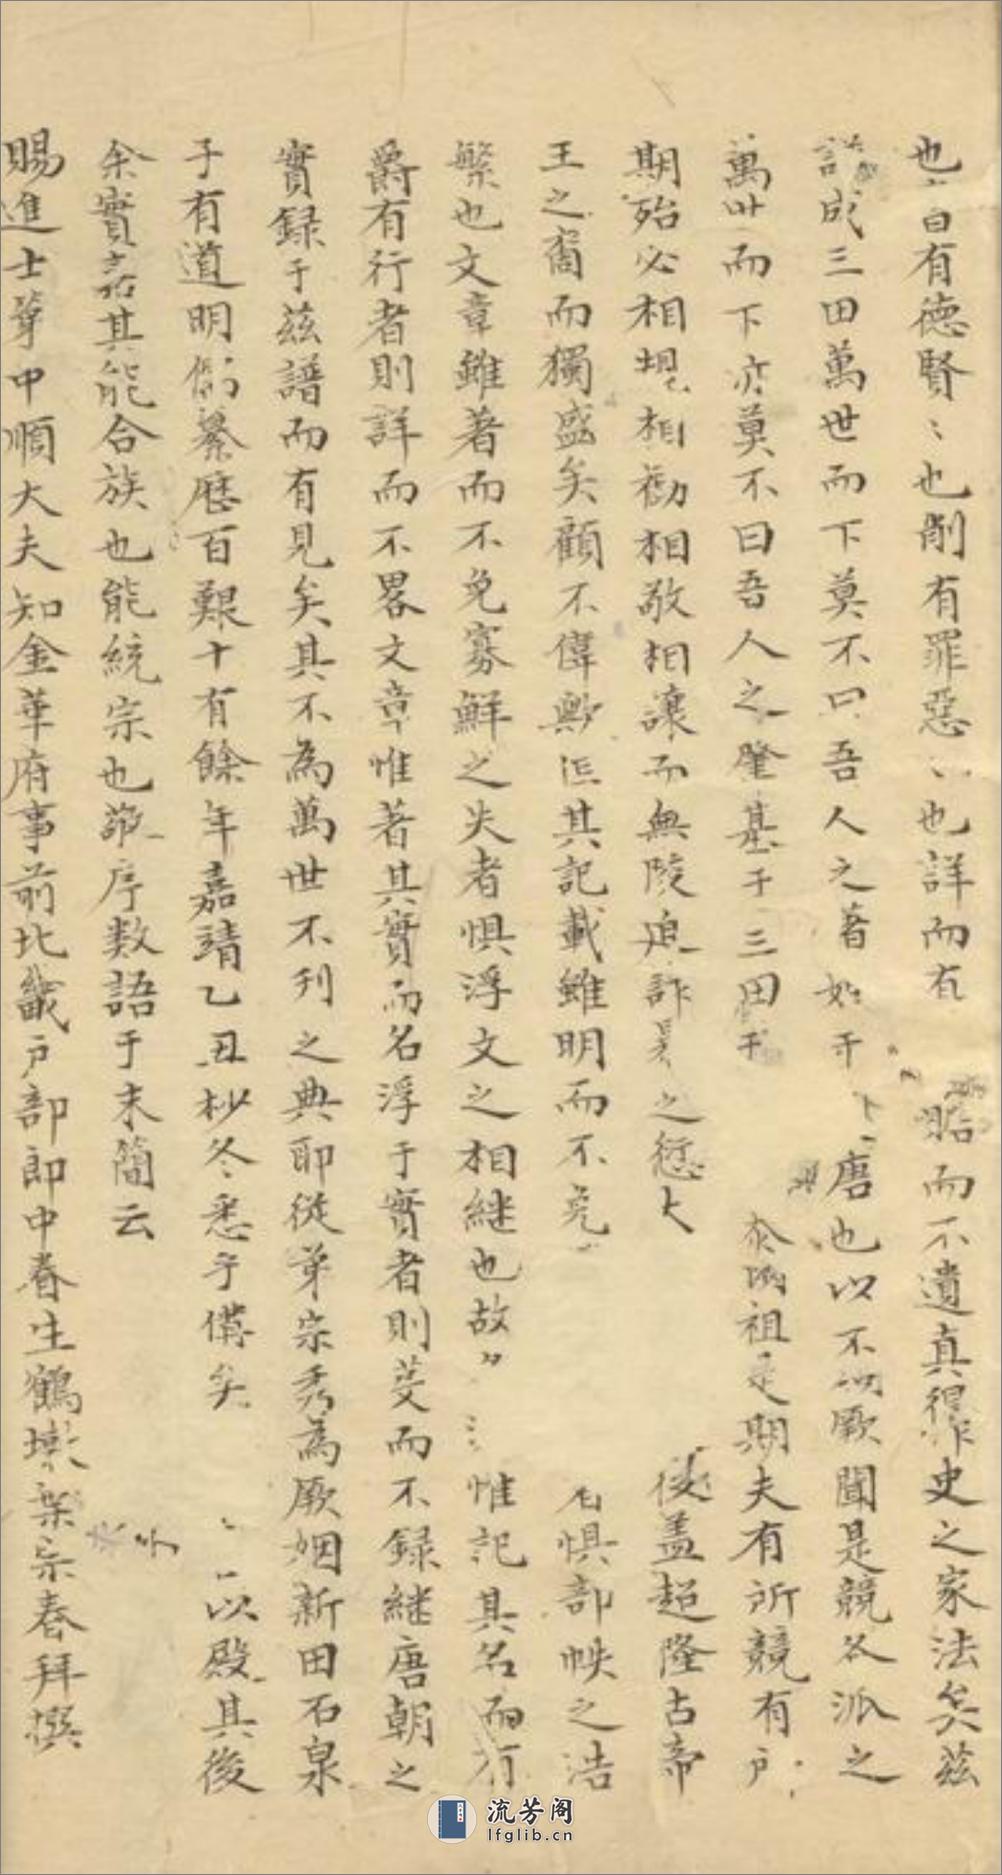 也旨有德賢〻也削有罪惡〻也詳而有 贍而不遺真得作史之家法矣茲
譜成三田萬世而下莫不曰吾人之著始于 唐也以不 厥聞是競各派之
萬世而下亦莫不曰吾人之肇基于三田 祖是期夫有所競有所
期殆必相規相勸相敬相讓而無陵 詐 之愆大 後盖超隆古帝
王之裔而獨盛矣顧不偉歟 其記載雖明而不免 惧部帙之浩
繁也文章雖著而不免寡鮮之失者惧浮文之相継也故 惟記其名而有
爵有行者則詳而不畧文章惟著其實而名浮于實者則芟而不録継唐朝之
實録于茲譜而有見矣其不為萬世不刋之典耶從弟宗秀為厥姻新田石泉
子有道明 纂歷百艱十有餘年嘉靖乙丑杪冬悉于 矣 以殿其後
余實嘉其能合族也能統宗也 序数語于末簡云
賜進士第中順大夫知金華府事前北畿户部郎中眷生鶴墩 宗春拜撰
流芳阁
lfglib.cn